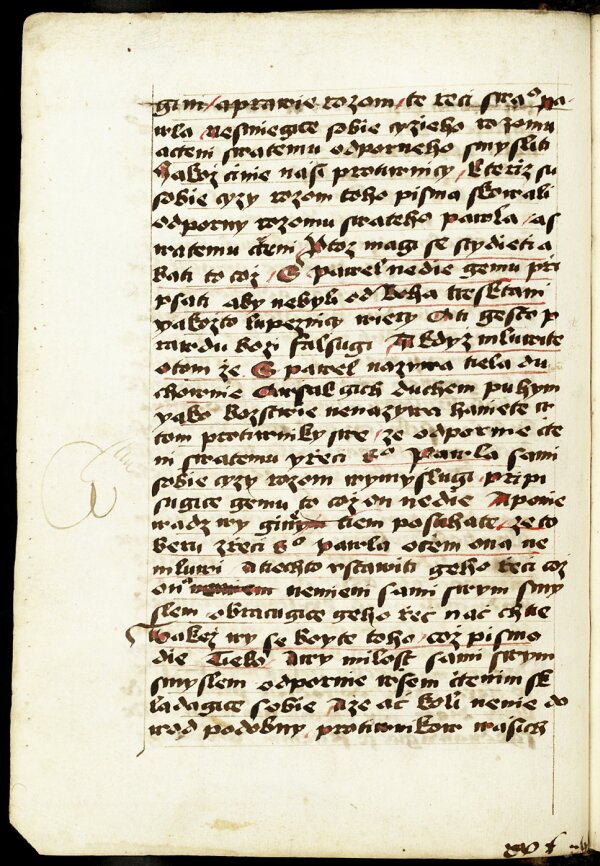 gim / a prawie rozom / te reci swa° pa
wla nesmiegice sobie cyzieho rozomu
a cteni swatemu odporneho smysliti
yakoz cinie nasi protiwnicy / kteriz su
sobie cyzy rozom toho pisma skowali
odporny rozomu swateho pawla / a s
watemu čteni / Ptoz magi se stydieti a
kati to coz / S pawel nedie gemu pri
psati aby nebyli od boha tresktani
yakozto lupeznicy wiery A ti gesto p
rawdu bozi falsugi / A kdyz mluwite
o tom že S pawel nazywa tiela du
chownie Awsak gich duchem puhym
yako bozstwie nenazywa haniete w
tom protiwniky swe / ze odpornie cte
ni swatemu y řeci S° Pawla sami
sobie cyzy rozom wymyslugi / pripi
sugice gemu to coz on nedie A ponie
wadz wy giny tiem posuhate / ze to
beru z řeci S° pawla o tem ona ne
mluwi A tiechto vstawiti geho řeci coz
on nemieni sami swym smy
slem obracugice geho řec nač chtie
Takez wy se boyte toho / coz pismo
die Tieko A wy milost sami swym
smyslem odpornie wsem čtenim sk
ladagice sobie A ze ač koli nenie do
wod podobny protiwnikow wasich